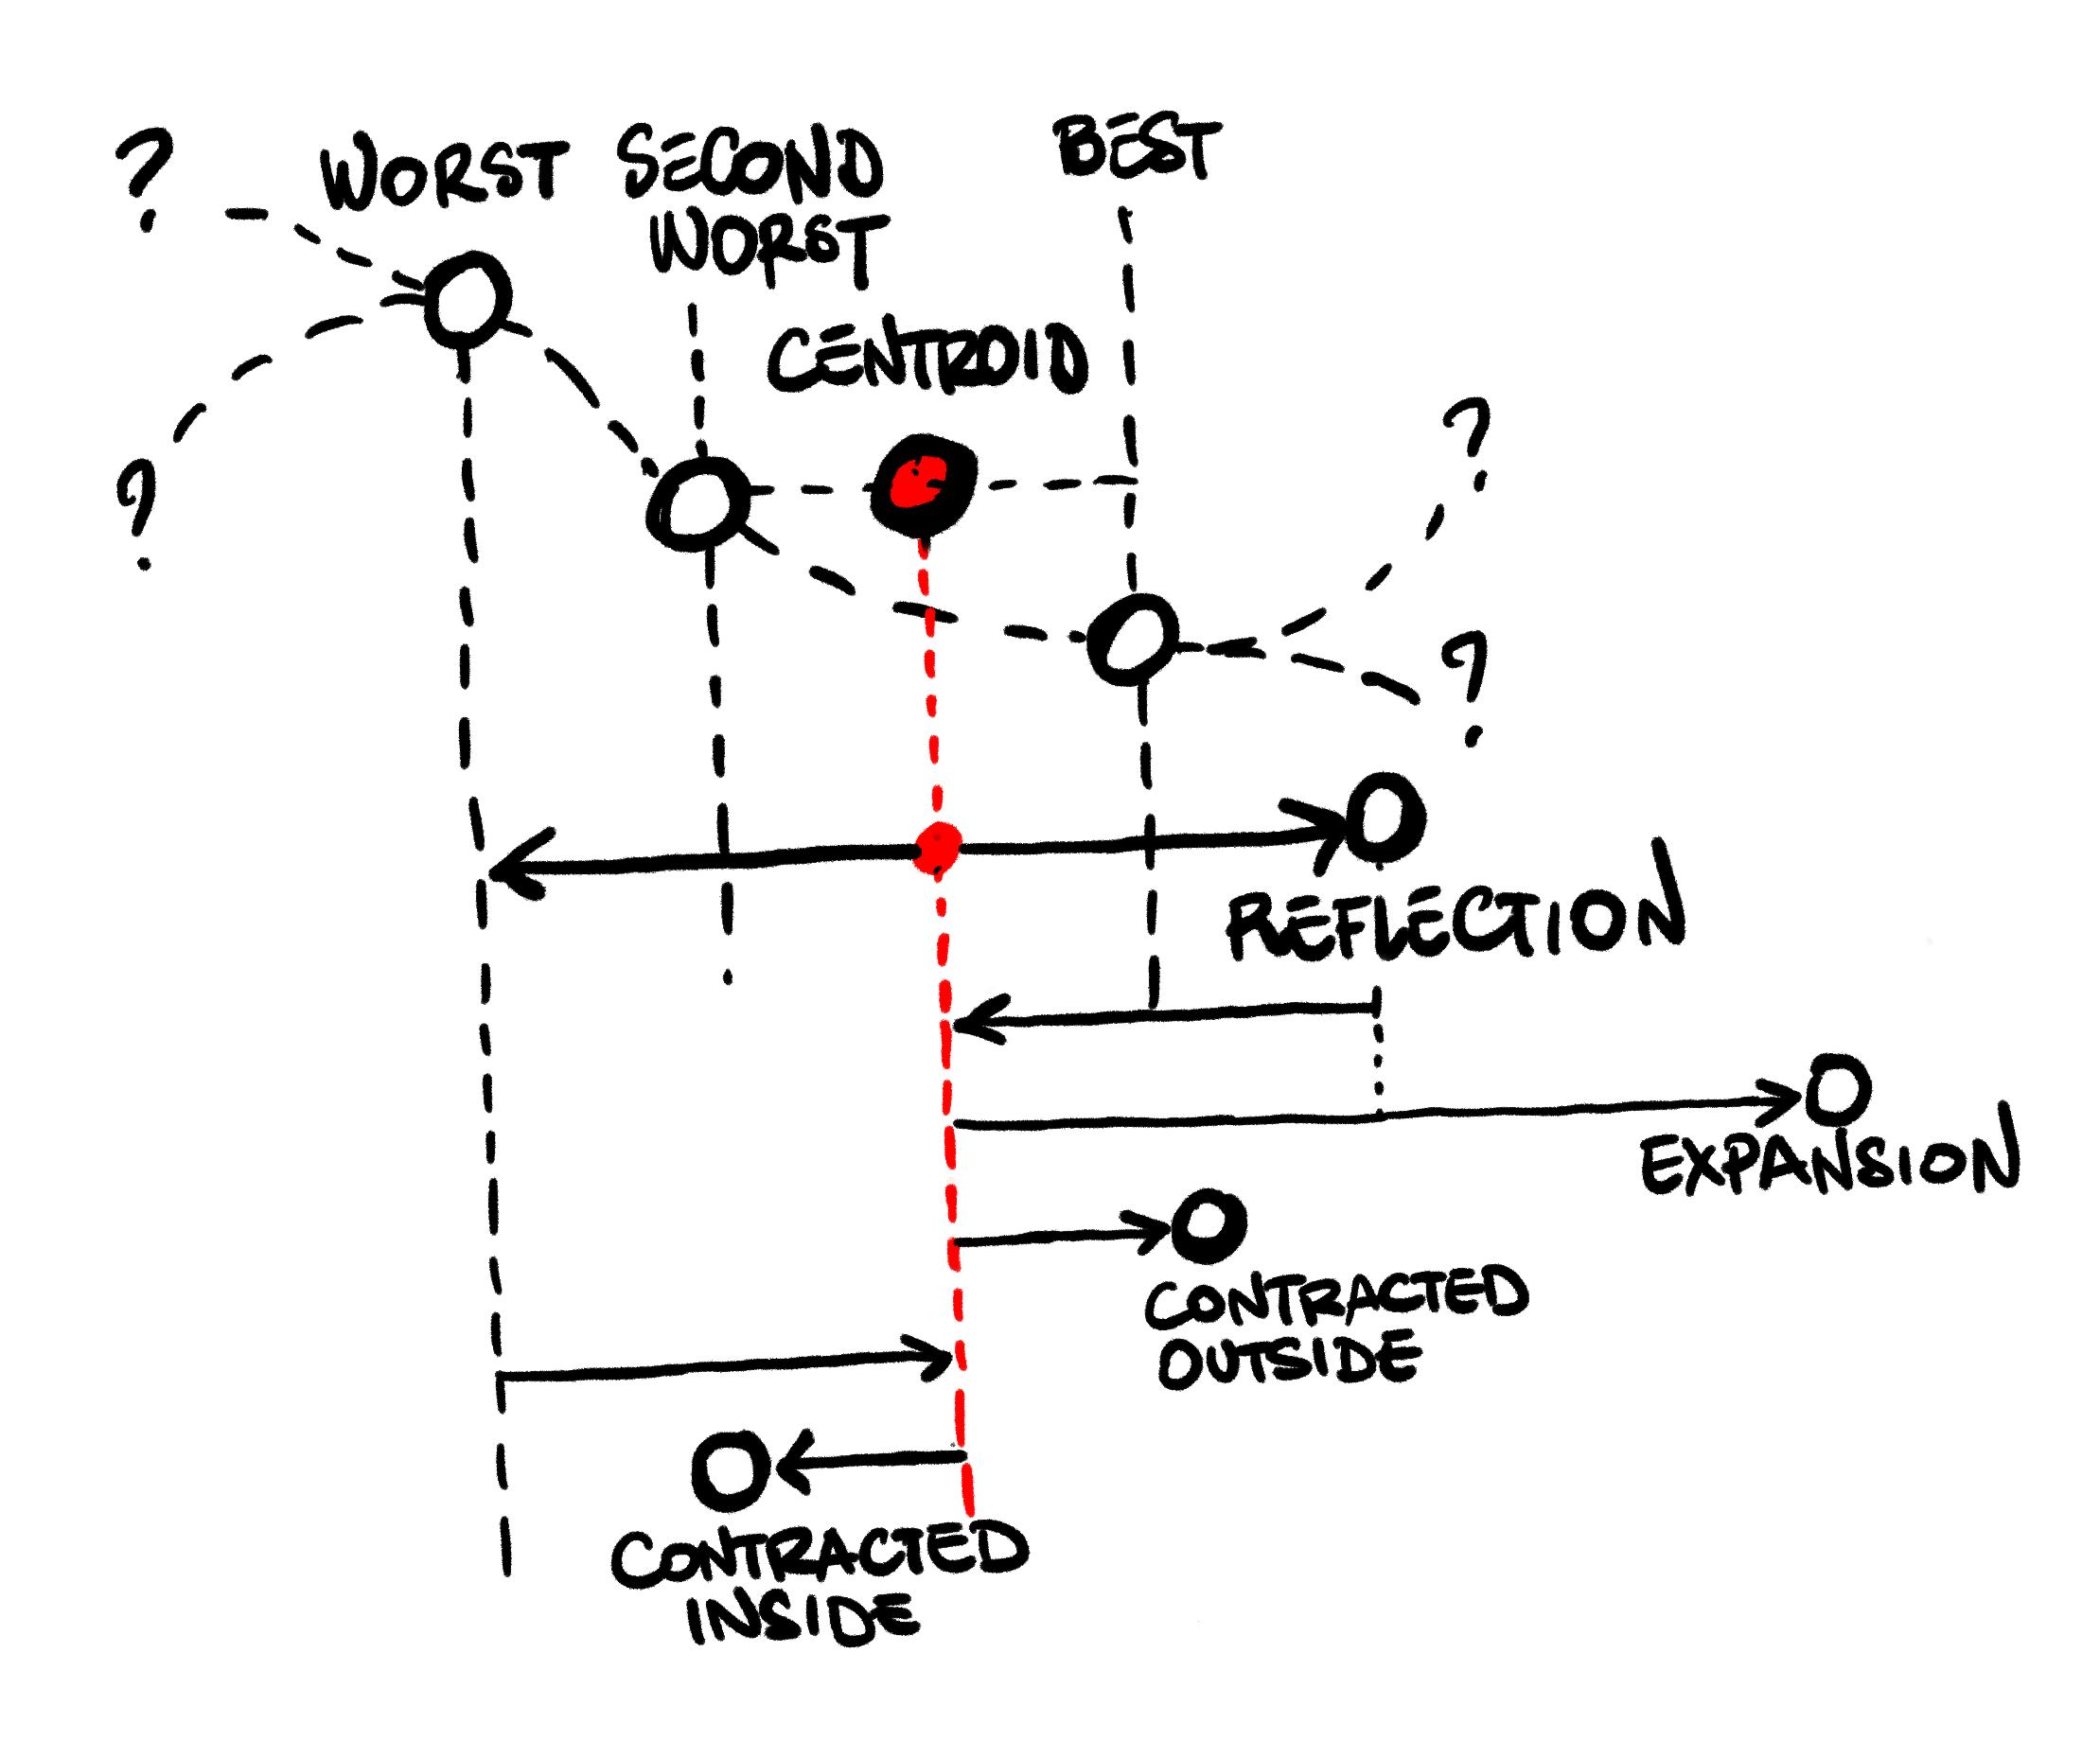 ?
WORST
SECOND
WORST
BEST
CENTROID
?
?
?
REFLECTION
EXPANSION
CONTRACTED
OUTSIDE
CONTRACTED
INSIDE